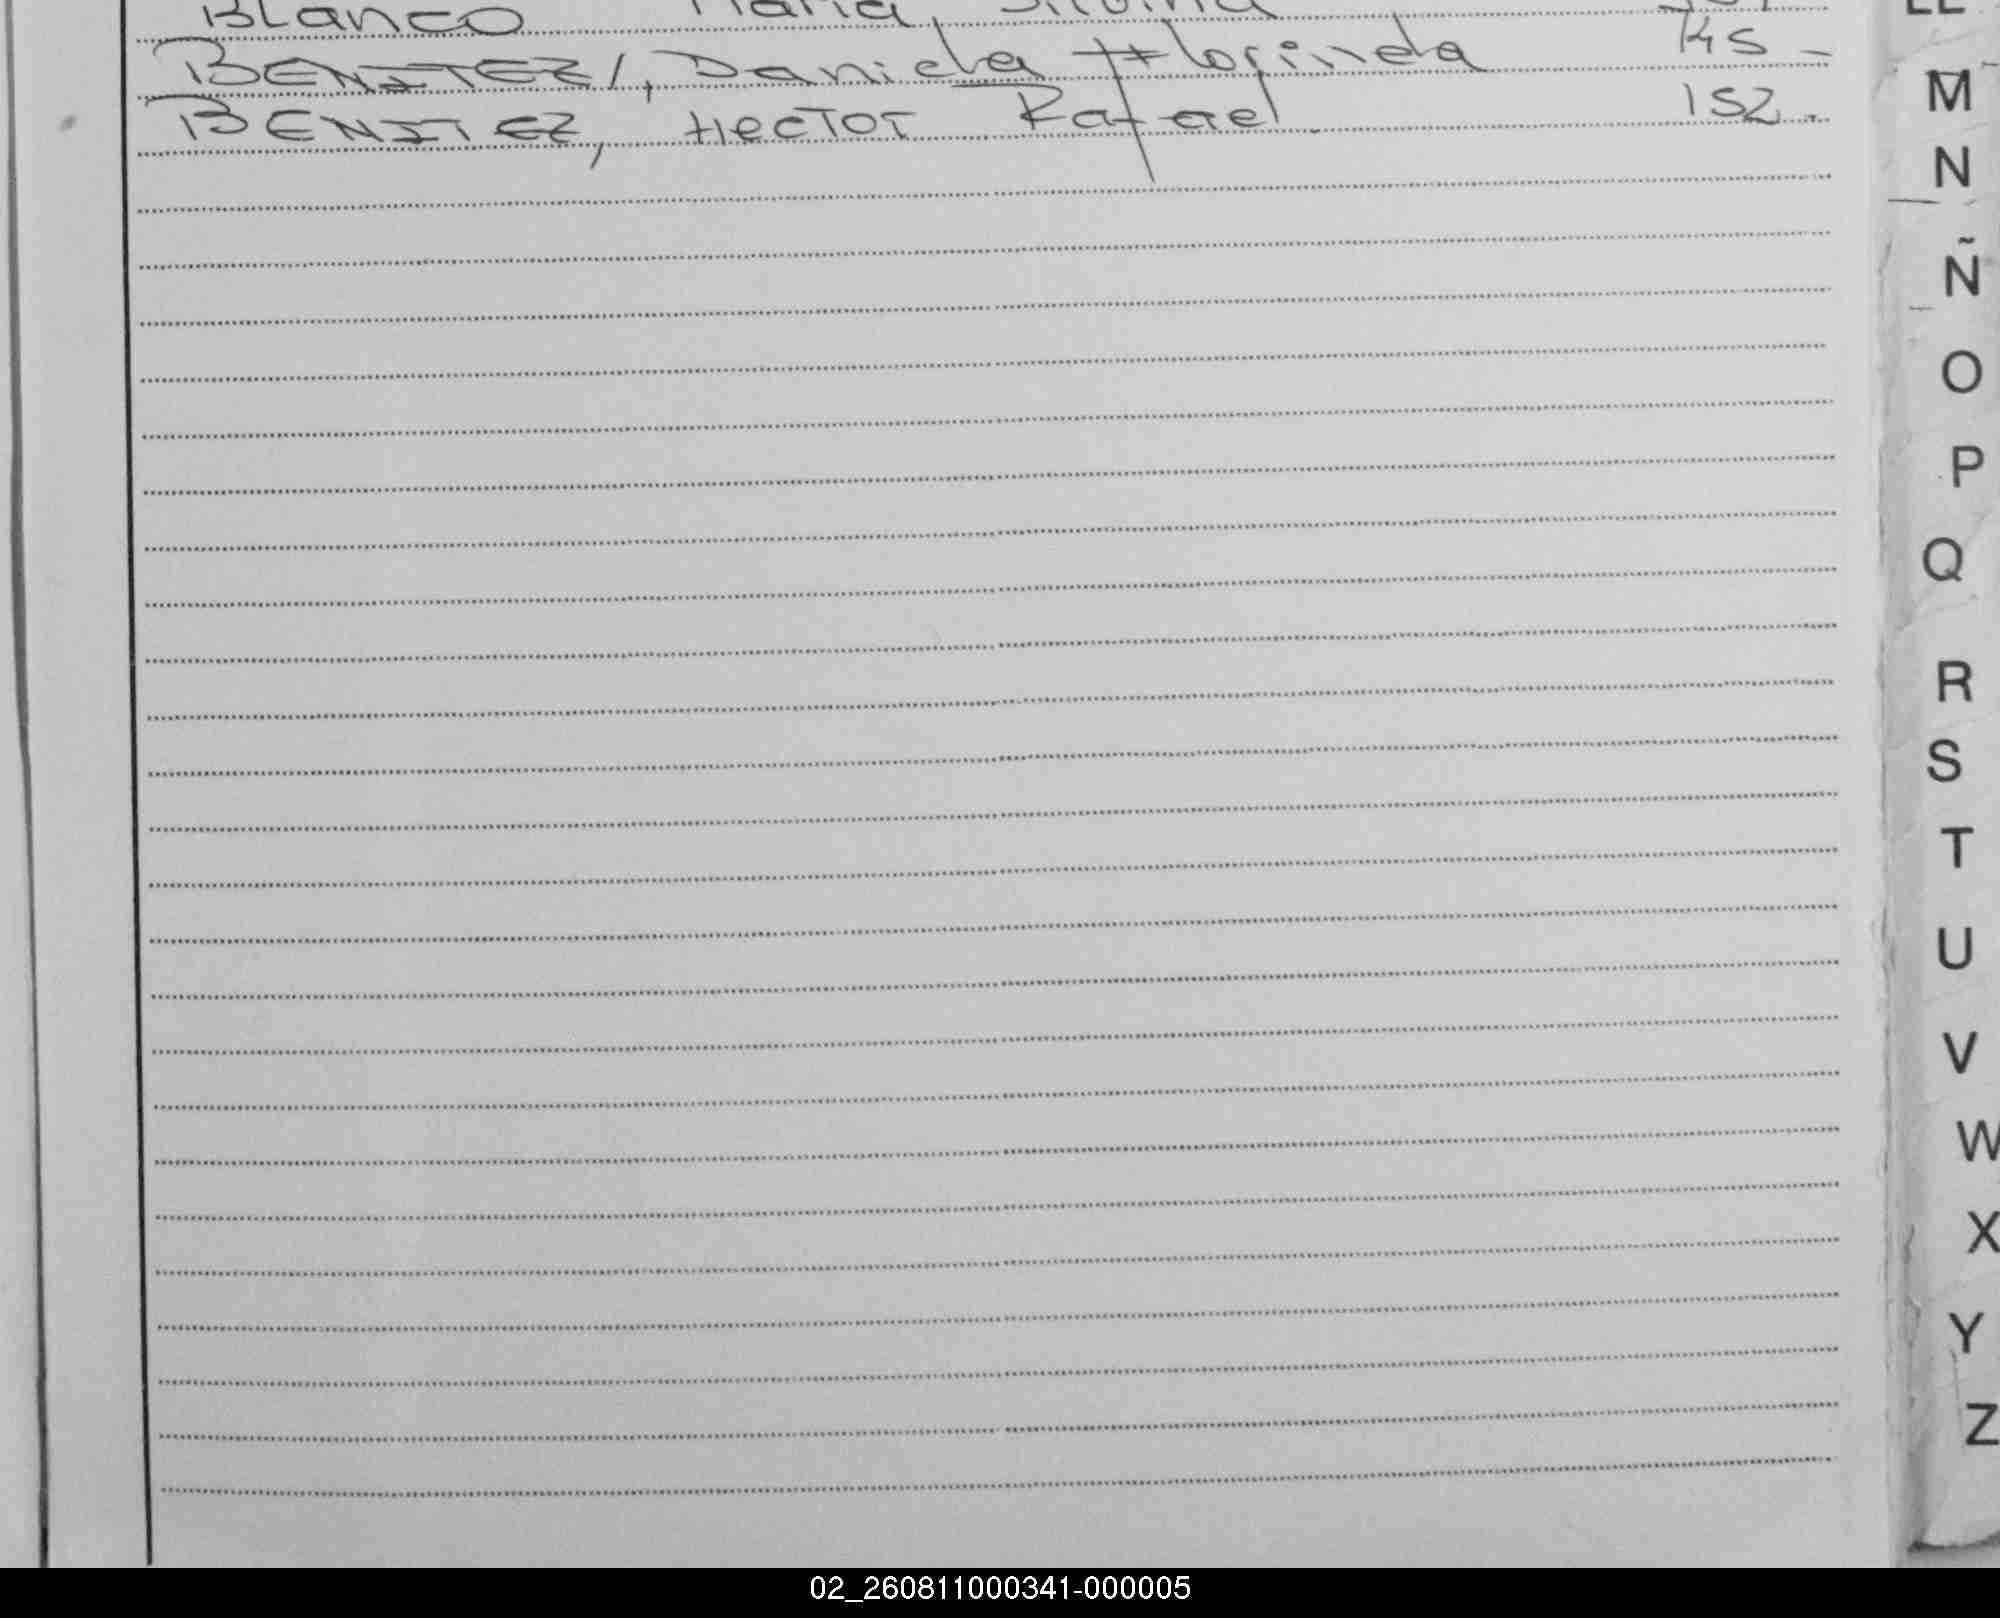 BLanco María Silvina
BENITEZ, Daniela Florinda 145_
BENITEZ, Hector Rafael. 152.
LL
M
N
Ñ
O
P
Q
R
S
T
U
V
W
X
Y
Z
02_260811000341-000005